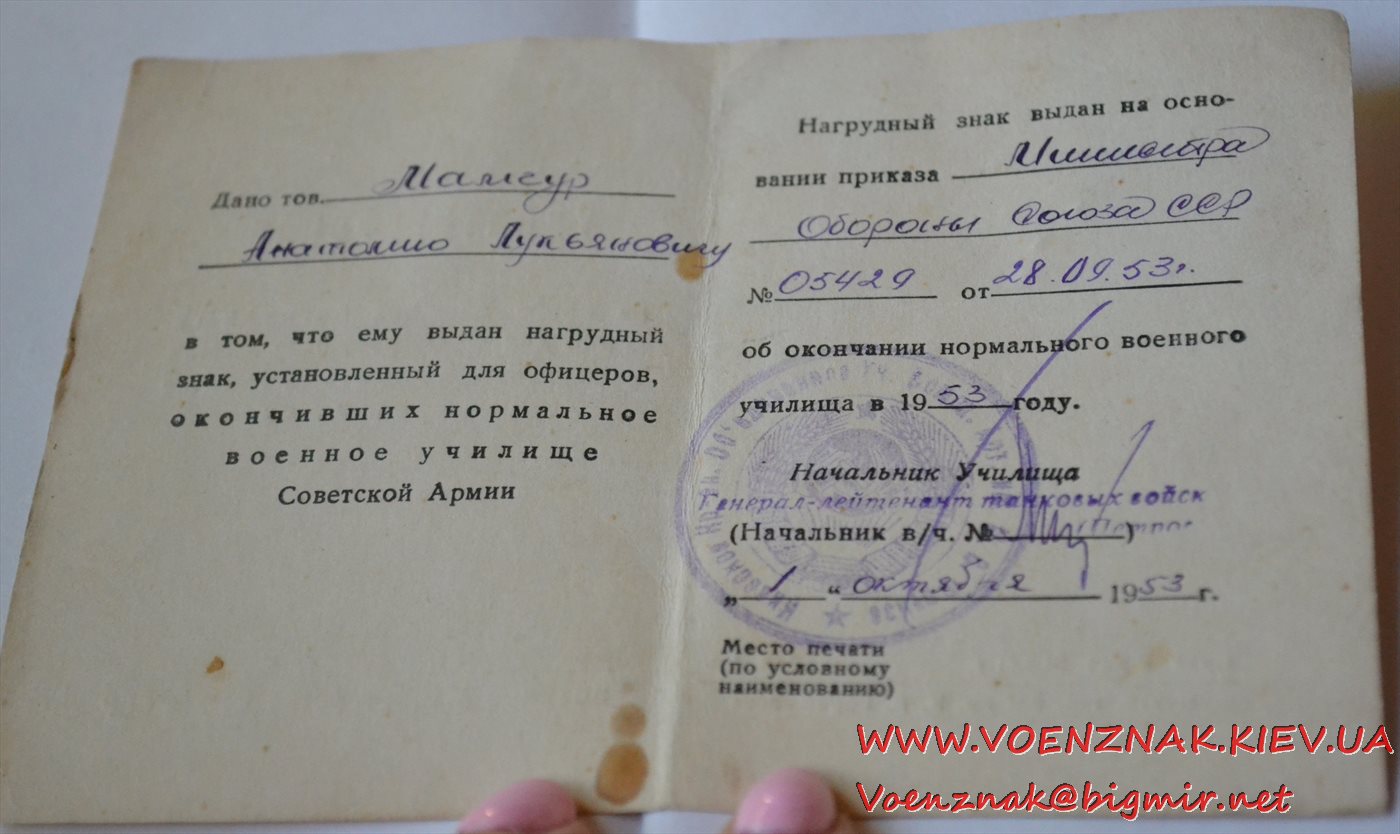 Дано тов. Мансур
Анатолию Лукьяновичу
в том, что ему выдан нагрудный
знак, установленный для офицеров,
окончивших нормальное
военное училище
Советской Армии
Нагрудный знак выдан на осно-
вании приказа Министра
Обороны Союза ССР
№ 05429 от 28.09.53г.
об окончании нормального военного
училища в 1953 году.
Начальник Училища
Генерал-лейтенант танковых войск
(Начальник в/ч. № )
„1“ октября 1953 г.
Место печати
(по условному
наименованию)
WWW.VOENZNAK.KIEV.UA
Voenznak@bigmir.net